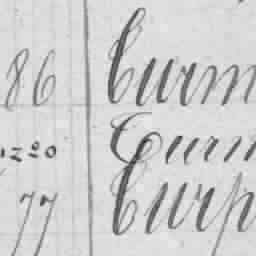 86 Curm
1220 Curn
77 Curp